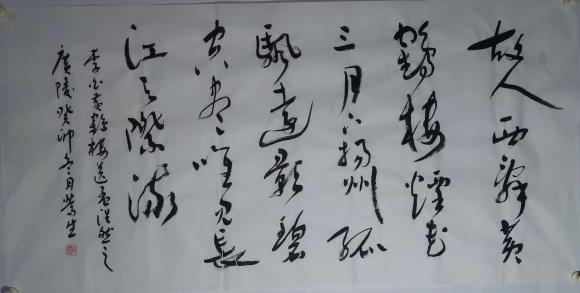 故人西辭黄
鶴樓煙花
三月下揚州孤
颿遠影碧
空盡唯見長
江天際流
李白黄鶴樓送孟浩然之
廣陵癸卯冬月